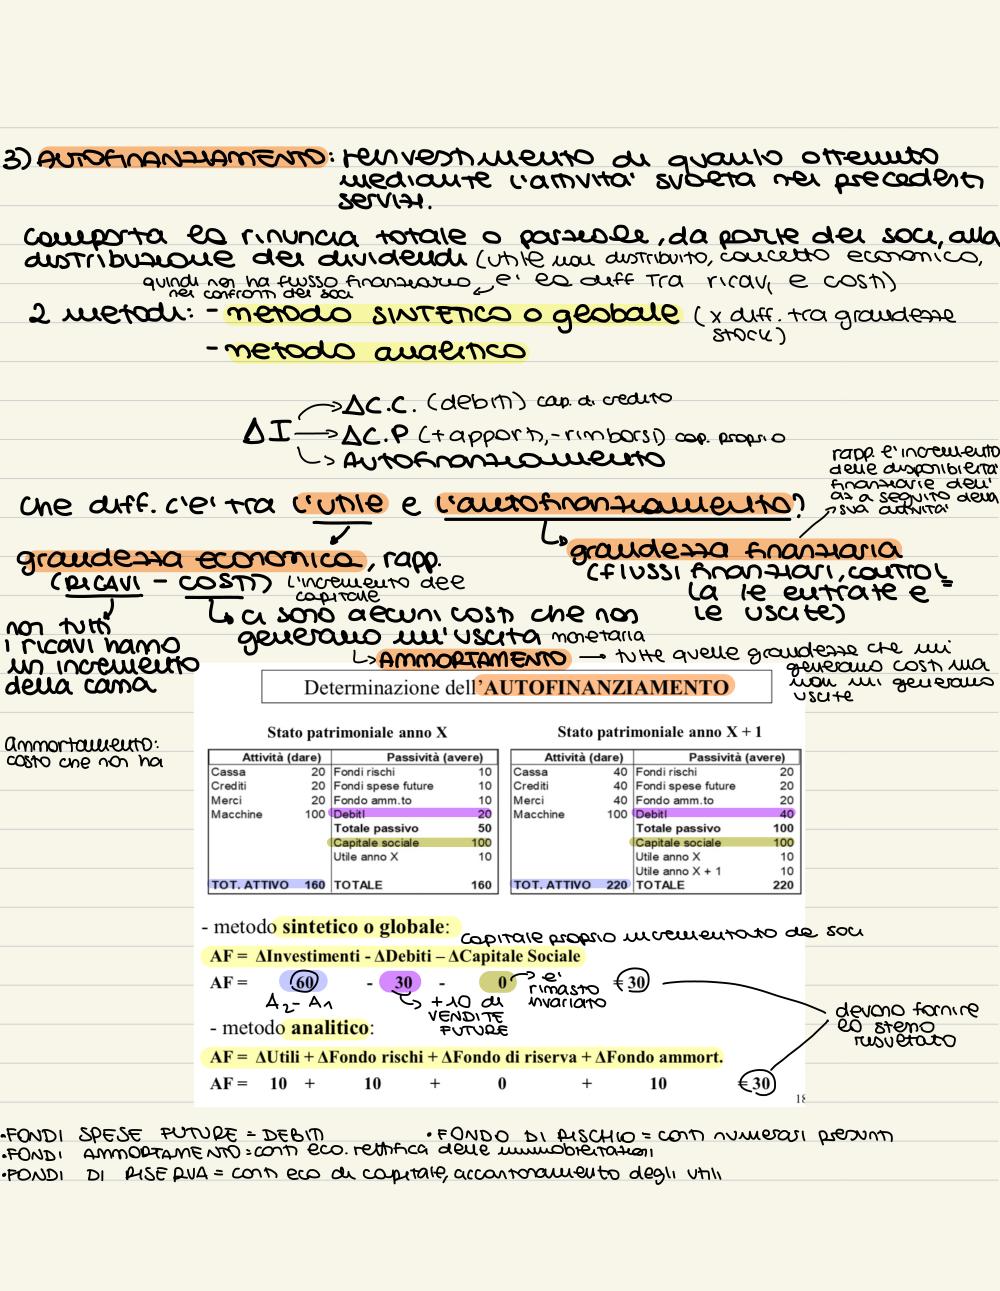 3) AUTOFINANZIAMENTO: reinvestimento di quanto ottenuto
mediante l'attività svolta nei precedenti
servizi.
Comporta la rinuncia totale o parziale, da parte dei soci, alla
distribuzione dei dividendi (utile non distribuito, concetto economico,
quindi non ha flusso finanziario è la diff tra ricavi e costi)
nei confronti dei soci
2 metodi: - metodo SINTETICO o globale (x diff. tra grandezze
stock)
- metodo analitico
ΔC.C. (debiti) cap. di credito
ΔI ΔC.P (+apporti, -rimborsi) cap. proprio
Autofinanziamento
rapp. l'incremento
delle disponibilità
finanziarie dell'
az a seguito della
sua attività
Che diff. c'è tra l'utile e l'autofinanziamento?
grandezza economica, rapp. grandezza finanziaria
(RICAVI - COSTI) l'incremento del (flussi finanziari, control=
capitale la le entrate e
le uscite)
non tutti ci sono alcuni costi che non
i ricavi hanno generano un'uscita monetaria
un incremento AMMORTAMENTO → tutte quelle grandezze che mi
della cassa generano costi ma
non mi generano
uscite
Determinazione dell'AUTOFINANZIAMENTO
Ammortamento:
costo che non ha
Stato patrimoniale anno X Stato patrimoniale anno X + 1
Attività (dare) Passività (avere) Attività (dare) Passività (avere)
Cassa 20 Fondi rischi 10 Cassa 40 Fondi rischi 20
Crediti 20 Fondi spese future 10 Crediti 40 Fondi spese future 20
Merci 20 Fondo amm.to 10 Merci 40 Fondo amm.to 20
Macchine 100 Debiti 20 Macchine 100 Debiti 40
Totale passivo 50 Totale passivo 100
Capitale sociale 100 Capitale sociale 100
Utile anno X 10 Utile anno X 10
Utile anno X + 1 10
TOT. ATTIVO 160 TOTALE 160 TOT. ATTIVO 220 TOTALE 220
- metodo sintetico o globale:
capitale proprio incrementato da soci
AF = ΔInvestimenti - ΔDebiti – ΔCapitale Sociale
AF = 60 - 30 - 0 è € 30
rimasto
invariato
A2 - A1 +10 di
VENDITE
FUTURE
devono fornire
lo stesso
risultato
- metodo analitico:
AF = ΔUtili + ΔFondo rischi + ΔFondo di riserva + ΔFondo ammort.
AF = 10 + 10 + 0 + 10 € 30
18
•FONDI SPESE FUTURE = DEBITI •FONDO DI RISCHIO = conti numerari presunti
•FONDI AMMORTAMENTO = conti eco. rettifica delle immobilitazioni
•FONDI DI RISERVA = conti eco di capitale, accantonamento degli utili